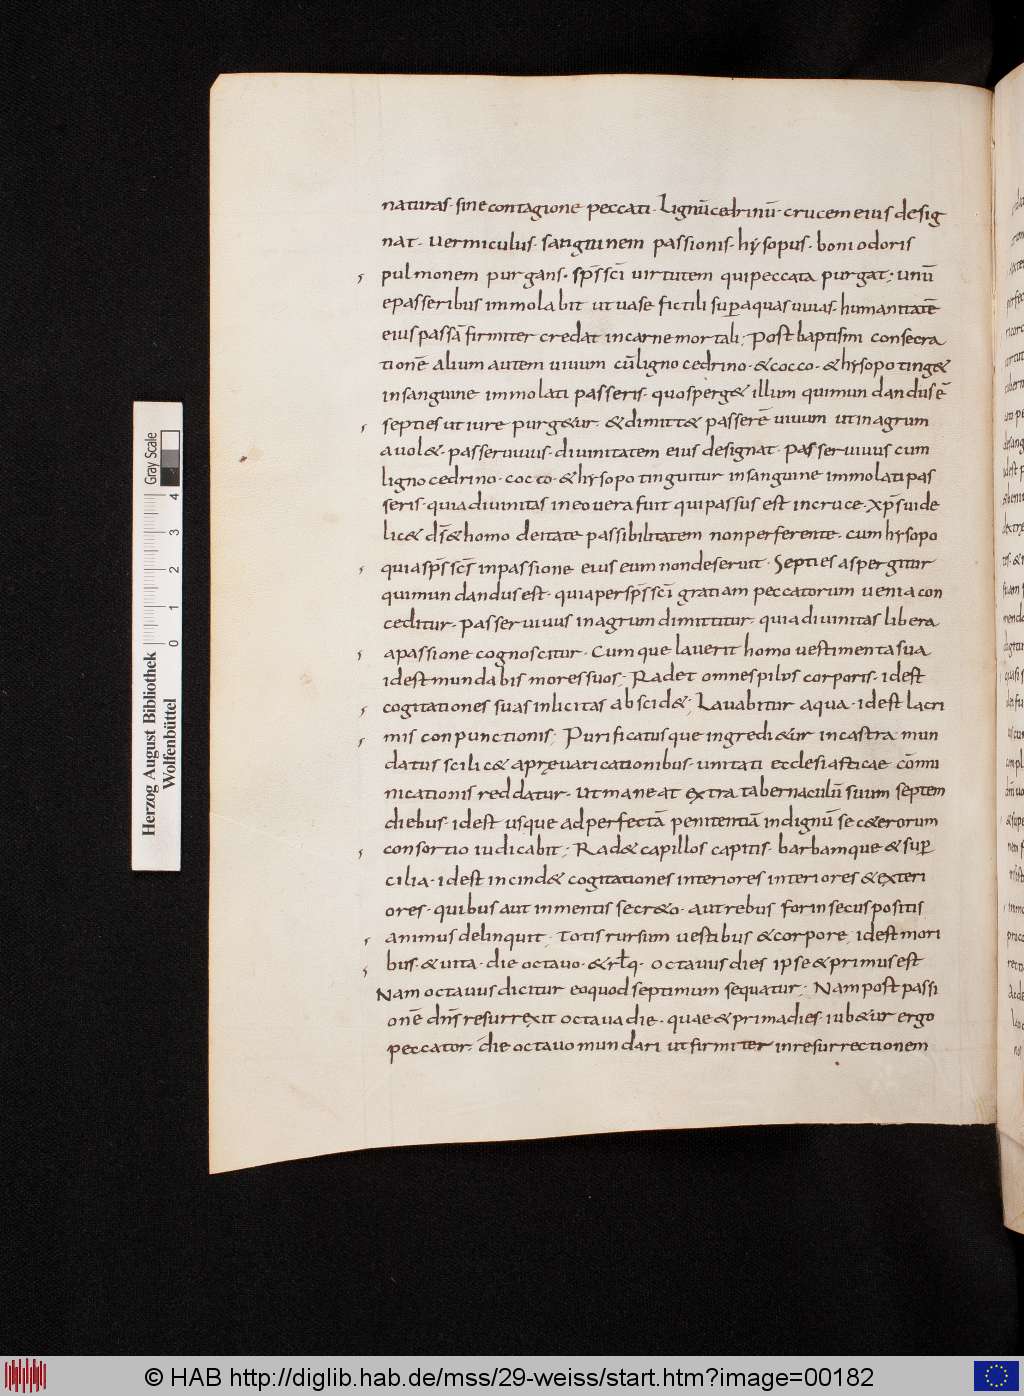 naturas· sine contagione peccati· Lignū cedrinū· crucem eius desig
nat· Uermiculus· sanguinem passionis· hysopus· boni odoris
pulmonem purgans· sp̄s sc̄i uirtutem qui peccata purgat; unū
e passeribus immolabit ut uase fictili sup̄ aquas uiuas· humanitatē
eius passā firmiter credat in carne mortali; Post baptismi consecra
tionē alium autem uiuum cū ligno cedrino· & cocco· & hysopo ting&
in sanguine immolati passeris· quo sperg& illum qui mundandus ē
septies ut iure purg&ur· & dimitt& passerē uiuum ut in agrum
auol&· passer uiuus· diuinitatem eius designat· Passer uiuus cum
ligno cedrino· cocco· & hysopo tinguitur in sanguine immolati pas
seris· quia diuinitas in eo uera fuit qui passus est in cruce· Xp̄s uide
lic& d̄s & homo deitate passibilitatem non perferente· cum hysopo
quia sp̄s sc̄s in passione eius eum non deseruit· Septies aspergitur
qui mundandus est· quia per sp̄s sc̄i gratiam peccatorum uenia con
ceditur· Passer uiuus in agrum dimittitur· quia diuinitas libera
a passione cognoscitur· Cumque lauerit homo uestimenta sua
idest mundabis mores suos; Radet omnes pilos corporis· idest
cogitationes suas inlicitas abscid&; Lauabitur aqua· idest lacri
mis conpunctionis; Purificatusque ingredi&ur in castra mun
datus scilic& a pręuaricationibus· unitati ecclesiasticae cōmu
nicationis reddatur· ut maneat extra tabernaculū suum septem
diebus· idest usque ad perfectā penitentiā indignū se c&erorum
consortio iudicabit; Rad& capillos capitis· barbamque & sup̄
cilia· idest incind& cogitationes interiores interiores & exteri
ores· quibus aut in mentis secr&o· aut rebus forinsecus positis
animus delinquit; Totis rursum uestibus & corpore; idest mori
bus· & uita· die octauo· & rłq· Octauus dies ipse & primus est
Nam octauus dicitur eo quod septimum sequatur; Nam post passi
onē dn̄s resurrexit octaua die· quae & prima dies· iub&ur ergo
peccator· die octauo mundari ut firmiter in resurrectionem
Herzog August Bibliothek
Wolfenbüttel
0 1 2 3 4
Gray Scale
© HAB http://diglib.hab.de/mss/29-weiss/start.htm?image=00182